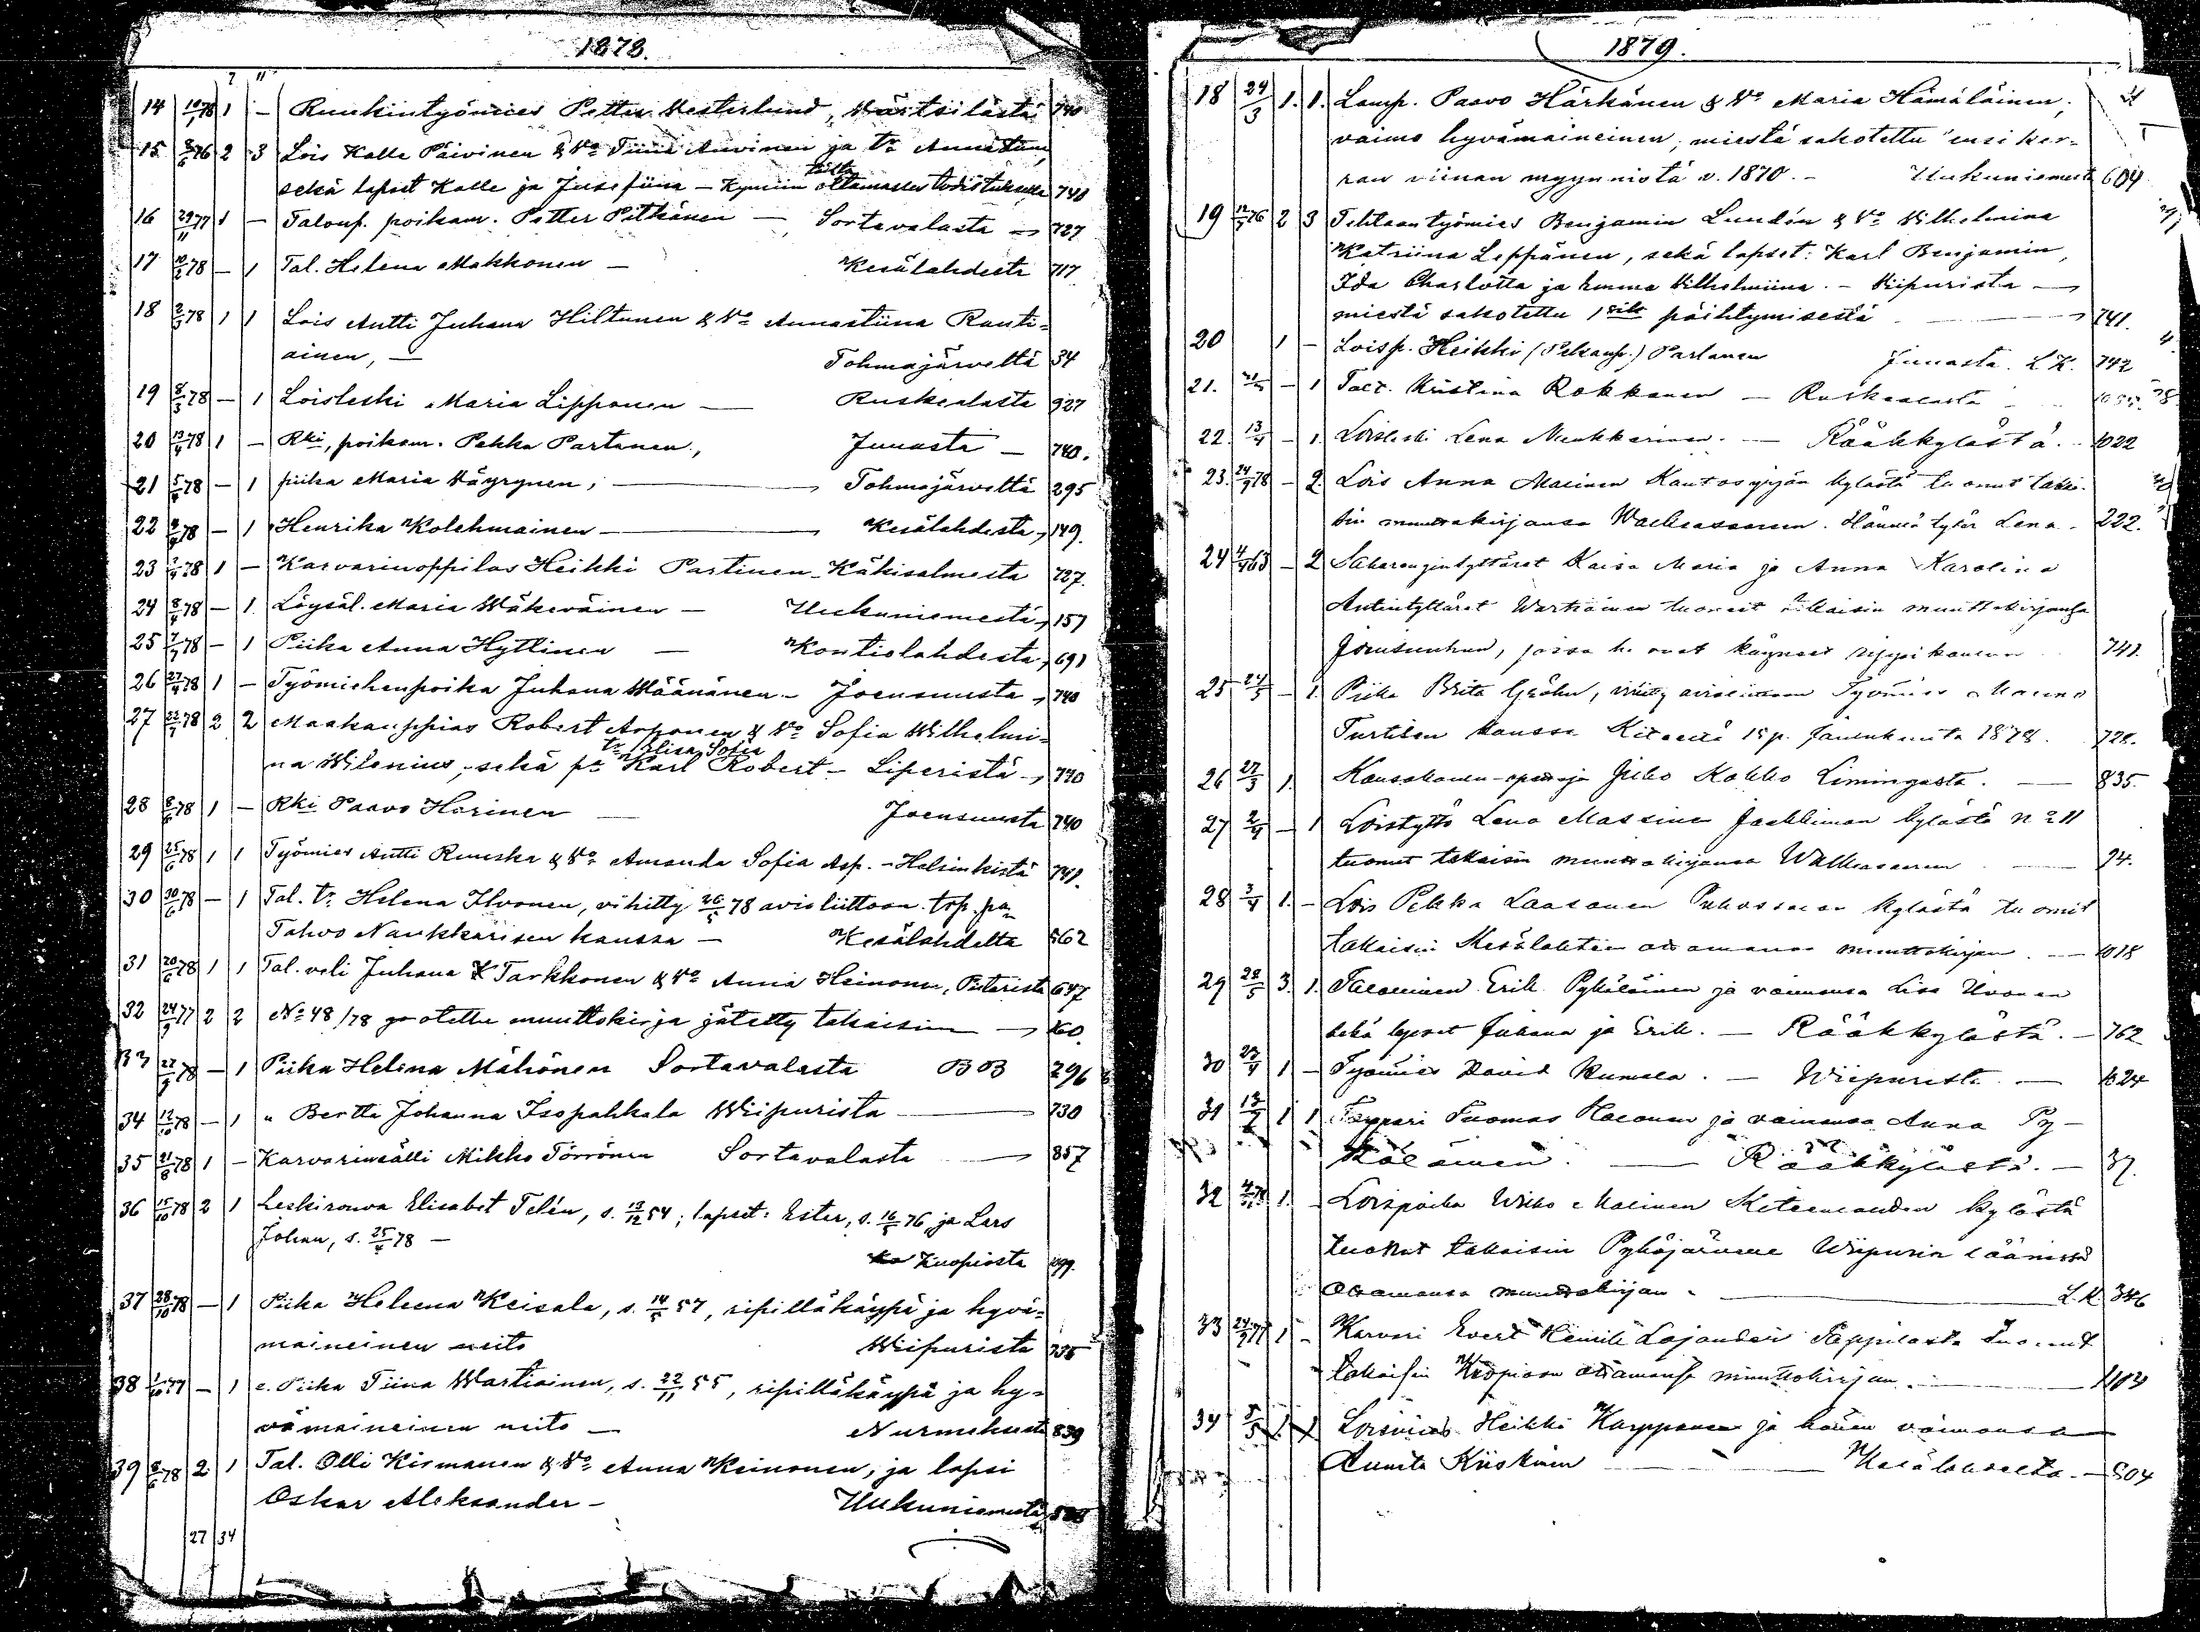 1878.
7 11
14 10/1 78 1 – Ruukintyömies Petter Westerlund, Wärtsilästä 740
15 2/6 76 2 3 Lois Kalle Päivinen & Vo Tiina Auvinen ja tr Annastiina,
sekä lapset Kalle ja Josefiina – Kymiin tältä ottamasta todistuksella 740
16 29/11 77 1 – Talonp. poikam. Petter Pitkänen – Sortavalasta 727
17 10/2 78 – 1 Tal. Helena Makkonen – Kesälahdesta 717.
18 2/3 78 1 1 Lois Antti Juhana Hiltunen & Vo Annastiina Rauti-
ainen, – Tohmajärveltä 34
19 8/3 78 – 1 Loisleski Maria Lipponen – Ruskealasta 927
20 13/4 78 1 – Rki, poikam. Pekka Partanen, Juuasta – 740.
21 5/4 78 – 1 piika Maria Väyrynen, – Tohmajärveltä 295
22 78 – 1 Henrika Kolehmainen – Kesälahdesta, 149.
23 78 1 – Karvarinoppilas Heikki Partinen – Käkisalmesta 727.
24 8/4 78 – 1. Löysäl. Maria Wäkeväinen – Uukuniemestä, 157
25 7/7 78 – 1 Piika Anna Hyttinen – Kontiolahdesta, 691
26 27/4 78 1 – Työmiehenpoika Juhana Wäänänen – Joensuusta, 740
27 22/7 78 2 2 Maakauppias Robert Asponen & Vo Sofia Wilhelmi-
na Wilenius, sekä pa Karl Robert tr Elisa Sofia – Liperistä 740
28 8/6 78 1 – Rki Paavo Harinen – Joensuusta 740
29 25/6 78 1 1 Työmies Antti Ruuska & Vo Amanda Sofia Asp. – Helsinkistä 741.
30 30/6 78 – 1 Tal. tr Helena Ilvonen, vihitty 26/5 78 avioliittoon tsp. pn
Tahvo Naukkarisen kanssa – Kesälahdelta 562
31 20/6 78 1 1 Tal. veli Juhana Tarkkonen & Vo Anna Heinonen, Pielaristä 647
32 24/9 77 2 2 No 48/78 otettu muuttokirja jätetty takaisin – 160.
33 27/9 78 – 1 Piika Helena Mähönen Sortavalasta BB 296
34 12/10 78 – 1 " Bertta Johanna Isopahkala Wiipurista – 730
35 21/8 78 1 – Karvarinsälli Mikko Törrönen Sortavalasta – 857
36 15/10 78 2 1 Leskirouva Elisabet Telén, s. 13/12 54; lapset: Ester, s. 16/5 76 ja Lars
Johan, s. 25/4 78 –
Kuopiosta 1099.
37 28/10 78 – 1 Piika Heleena Keisala, s. 14/5 57, ripilläkäypä ja hyvä-
maineinen neito Wiipurista 735
38 1/10 77 – 1 e. Piika Tiina Wartiainen, s. 22/11 55, ripilläkäypä ja hy-
vämaineinen neito – Nurmeksesta 839
39 8/6 78 2 1 Tal. Olli Kirmanen & Vo Anna Keinonen, ja lapsi
Oskar Aleksander – Uukuniemestä
27 34
1879.
18 24/3 1. 1. Lamp. Paavo Härkänen & Vo Maria Hämäläinen;
vaimo hyvämaineinen, miestä sakotettu ensi ker-
ran viinan myynnistä v. 1870. – Uukuniemestä 604
19 12/7 76 2 3 Tehtaantyömies Benjamin Lundén & Vo Wilhelmina
Katriina Leppänen, sekä lapset: Karl Benjamin,
Ida Charlotta ja Emma Wilhelmiina. – Wiipurista –
miestä sakotettu 1 päihtymisestä – 741.
20 1 – Loisp. Heikki (Pekanp.) Partanen Juuasta. L.K. 742
21. – 1 Tal. Kristina Rokkanen – Ruskealasta
22. 13/4 – 1. Loisleski Lena Naukkarinen. – Rääkkylästä. 1022
23. 24/9 78 – 2. Lois Anna Malinen Kantosyrjän kylästä tuonut takai-
sin muuttokirjansa Walkeasaareen. Hänen tytär Lena. 222.
24 4/4 63 – 2 Sakarangintyttäret Kaisa Maria ja Anna Karolina
Antintyttäret Wartiainen tuoneet takaisin muuttokirjansa
Joensuuhun, jossa he ovat käyneet rippikoulun 741.
25 24/5 – 1. Piika Brita Gröhn, vihitty avioliittoon Työmies Mauno
Turtisen kanssa Kiteellä 15 p. Jouluk. 1878. 728.
26 27/3 1. Kansakoulu-opettaja Juho Kokko Limingasta. – 835.
27 2/4 – 1 Loistyttö Lena Massinen Jaakkiman kylästä n:o 11
tuonut takaisin muuttokirjansa Walkeasaareen – 94.
28 3/4 1. – Lois Pekka Laasonen Puhossalon kylästä tuonut
takaisin Kesälahteen ottamansa muuttokirjan. – 1018
29 28/5 3. 1. Talollinen Erik Pykäläinen ja vaimonsa Liisa Ilvonen
sekä lapset Juhana ja Erik. – Rääkkylästä. – 762
30 27/4 1 – Työmies David Rumala. – Wiipurista – 1024
31 13/7 1 1 Torppari Tuomas Halonen ja vaimonsa Anna Py-
käläinen. – Rääkkylästä. – 37.
32 1. – Loispoika Wilho Malinen Kiteenlahden kylästä
tuonut takaisin Pyhäjärvelle Wiipurin läänissä
ottamansa muuttokirjan. – L.K. 346
33 24/9 77 1 – Karvari Evert Henrik Lojander Pappilasta tuonut
takaisin Kuopioon ottamansa muuttokirjan. – 1103
34 5/5 1 1 Loismies Heikki Karppanen ja hänen vaimonsa
Anna Kiiskinen – Kesälahdelta. – 504